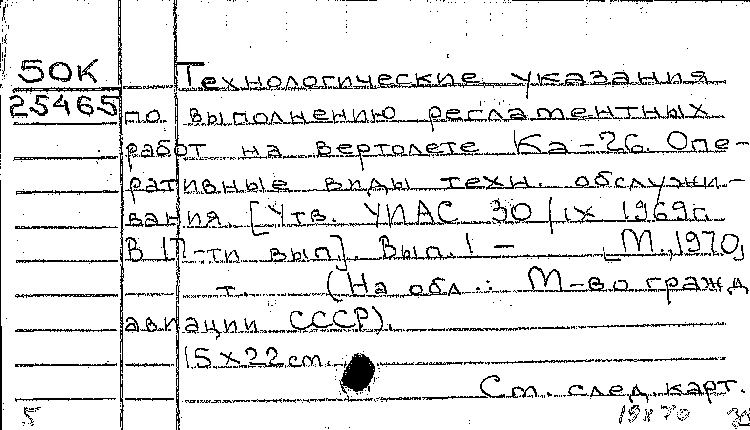 50К
25465
Технологические указания
по выполнению регламентных
работ на вертолете Ка-26. Опе-
ративные виды техн. обслужи-
вания. [Утв. УИАС 30/IX 1969г.
В 17-ти вып]. Вып. 1 – [М., 1970,
т. (На обл.: М-во гражд
авиации СССР).
15х22 cm.
Ст. след. карт.
5